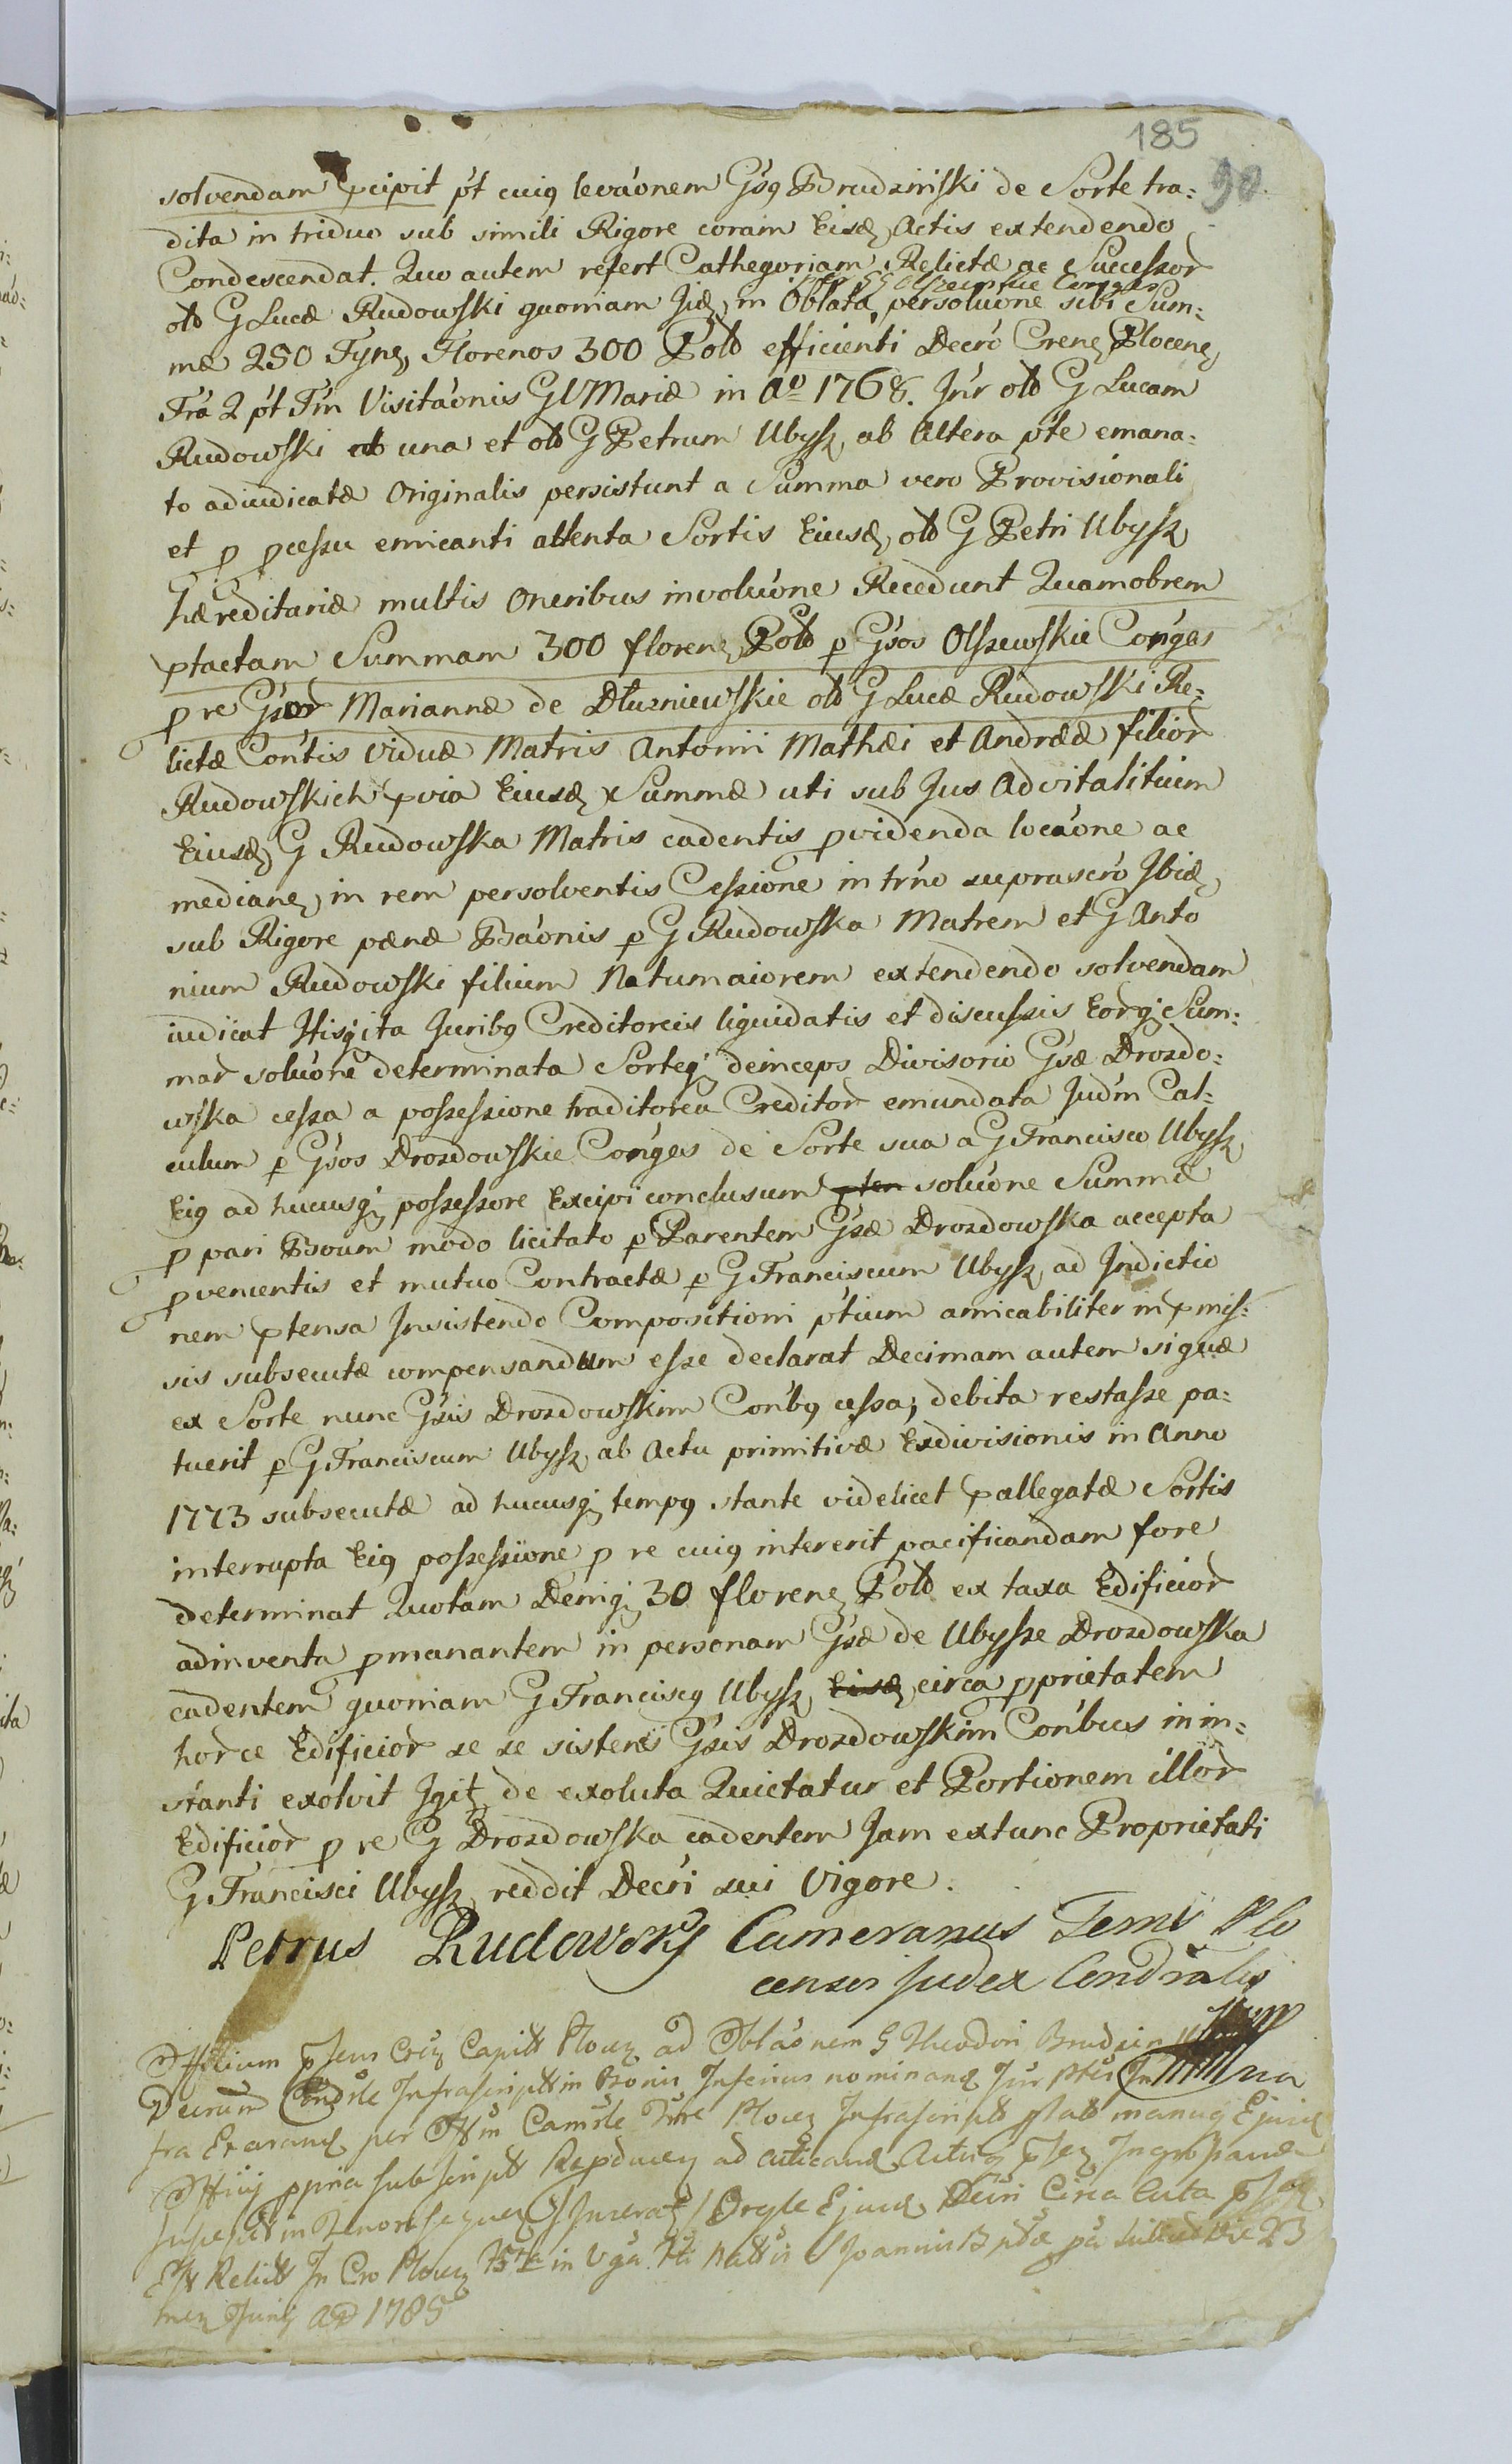 185
90
solvendam pcipit pt cuiq levaonem Gsq Brudzinski de Sorte tra:
dita in triduo sub simili Rigore coram Eisd Actis extendendo
Condescendat. Quo autem refert Cathegoriam Relictæ ac Successor
per GG Olszewskie Coniges
olb G Lucæ Rudowski quoniam Jid, in Oblata, persoluone sibi Sum:
mæ 250 Tynf, Florenos 300 Polo efficienti Decro Crenz Plocenz
Fra 2 pt Fm Visitaonis GVMariæ in Ao 1768. Jnr olb G Lucam
Rudowski ab una et olb G Petrum Ubysz, ab Altera pte emana:
to adiudicatæ Originalis persistunt a Summa vero Provisionali
et p pcessu emicanti attenta Sortis Eiusd, olb G Petri Ubysz,
Hæreditariæ multis Oneribus involuone Recedunt Quamobrem
ptactam Summam 300 floren Polo p Gsos Olszewskie Conges
p re Gsor Mariannæ de Dłuzniewskie olb G Lucæ Rudowski Re:
lictæ Contis Viduæ Matris Antonii Mathæi et Andreæ filior
Rudowskich pvia Eiusd Summæ uti sub Jus Advitalitium
Eiusd, G Rudowska Matris cadentis pvidenda locaone ac
medianz, in rem persolventis Cessione in trno suprascro Jbid,
sub Rigore pænæ Baonis p G Rudowska Matrem et G Anto
nium Rudowski filium Natumaiorem extendendo solvendam
iudicat Hisqita Juribq Creditoreis liquidatis et discussis Eorq Sum:
mar soluone determinata Sorteq deinceps Divisorio Gsæ Drozdo:
wska cessa a possessione traditorea Creditor emundata Judm Cal:
culum p Gsos Drozdowskie Conges de Sorte sua a G Francisco Ubysz,
Eiq ad hucusq possessore Excipi conclusum pten soluone Summæ
p pari Boum modo licitato p Parentem Gsæ Drozdowska accepta
pvenientis et mutuo Contractæ p G Franciscum Ubysz, ad Indictio
nem ptensa Insistendo Compositioni ptium amicabiliter in pmis:
sis subsecutæ compensandum esse declarat Decimam autem siquæ
ex Sorte nunc Gsis Drozdowskim Conbq cessa, debita restasse pa:
tuerit p G Franciscum Ubysz, ab Actu primitivæ Exdivisionis in Anno
1773 subsecutæ ad hucusq tempq stante videlicet pallegatæ Sortis
interrupta Eiq possessione p re cuiq intererit pacificandam fore
determinat Quotam Deniq 30 floren Polo ex taxa Edificior
adinventa pmanantem in personam Gsæ de Ubysze Drozdowska
cadentem quoniam G Franciscq Ubysz, Eisd, circa pprietatem
horce Edificior se se sistens Gsis Drozdowskim Conbus in in:
stanti exolvit Jgit, de exoluta Quietatur et Portionem illor
Edificior p re G Drozdowska cadentem Jam extunc Proprietati
G Francisci Ubysz, reddit Decri sui Vigore.
Petrus Rudowsky Cameranus Terrs Plo
censis Judex Cendralis
Offitium psens Capitt Plocz ad Oblaonem G Theodori
Decrum Infrascript in Bonis Inferius nominand
fra per Plocz Infrascript manuq Ejusd
Offiij ppria subscript ad Acticand
Suscept in Tenore sequen Ejusd Decri Circa Acta
Est Relict In Cro Plocz in Vga S Joannis B 23
mez Junij AD 1785